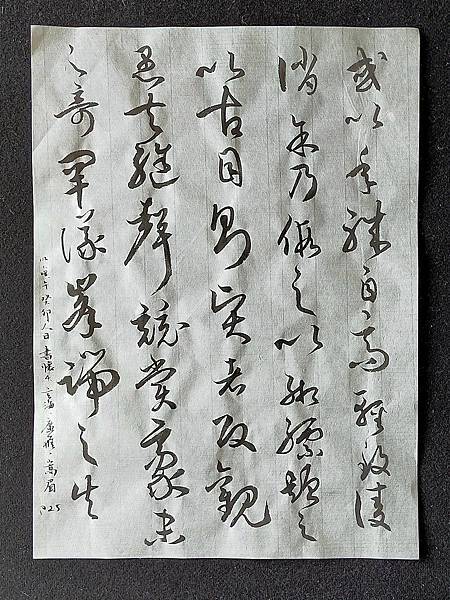 或以年職自高輕致陵
誚余乃假之以緗縹題之
以古目則賢者改觀
愚夫繼聲競賞豪末
之奇罕議峯端之失
癸卯人日